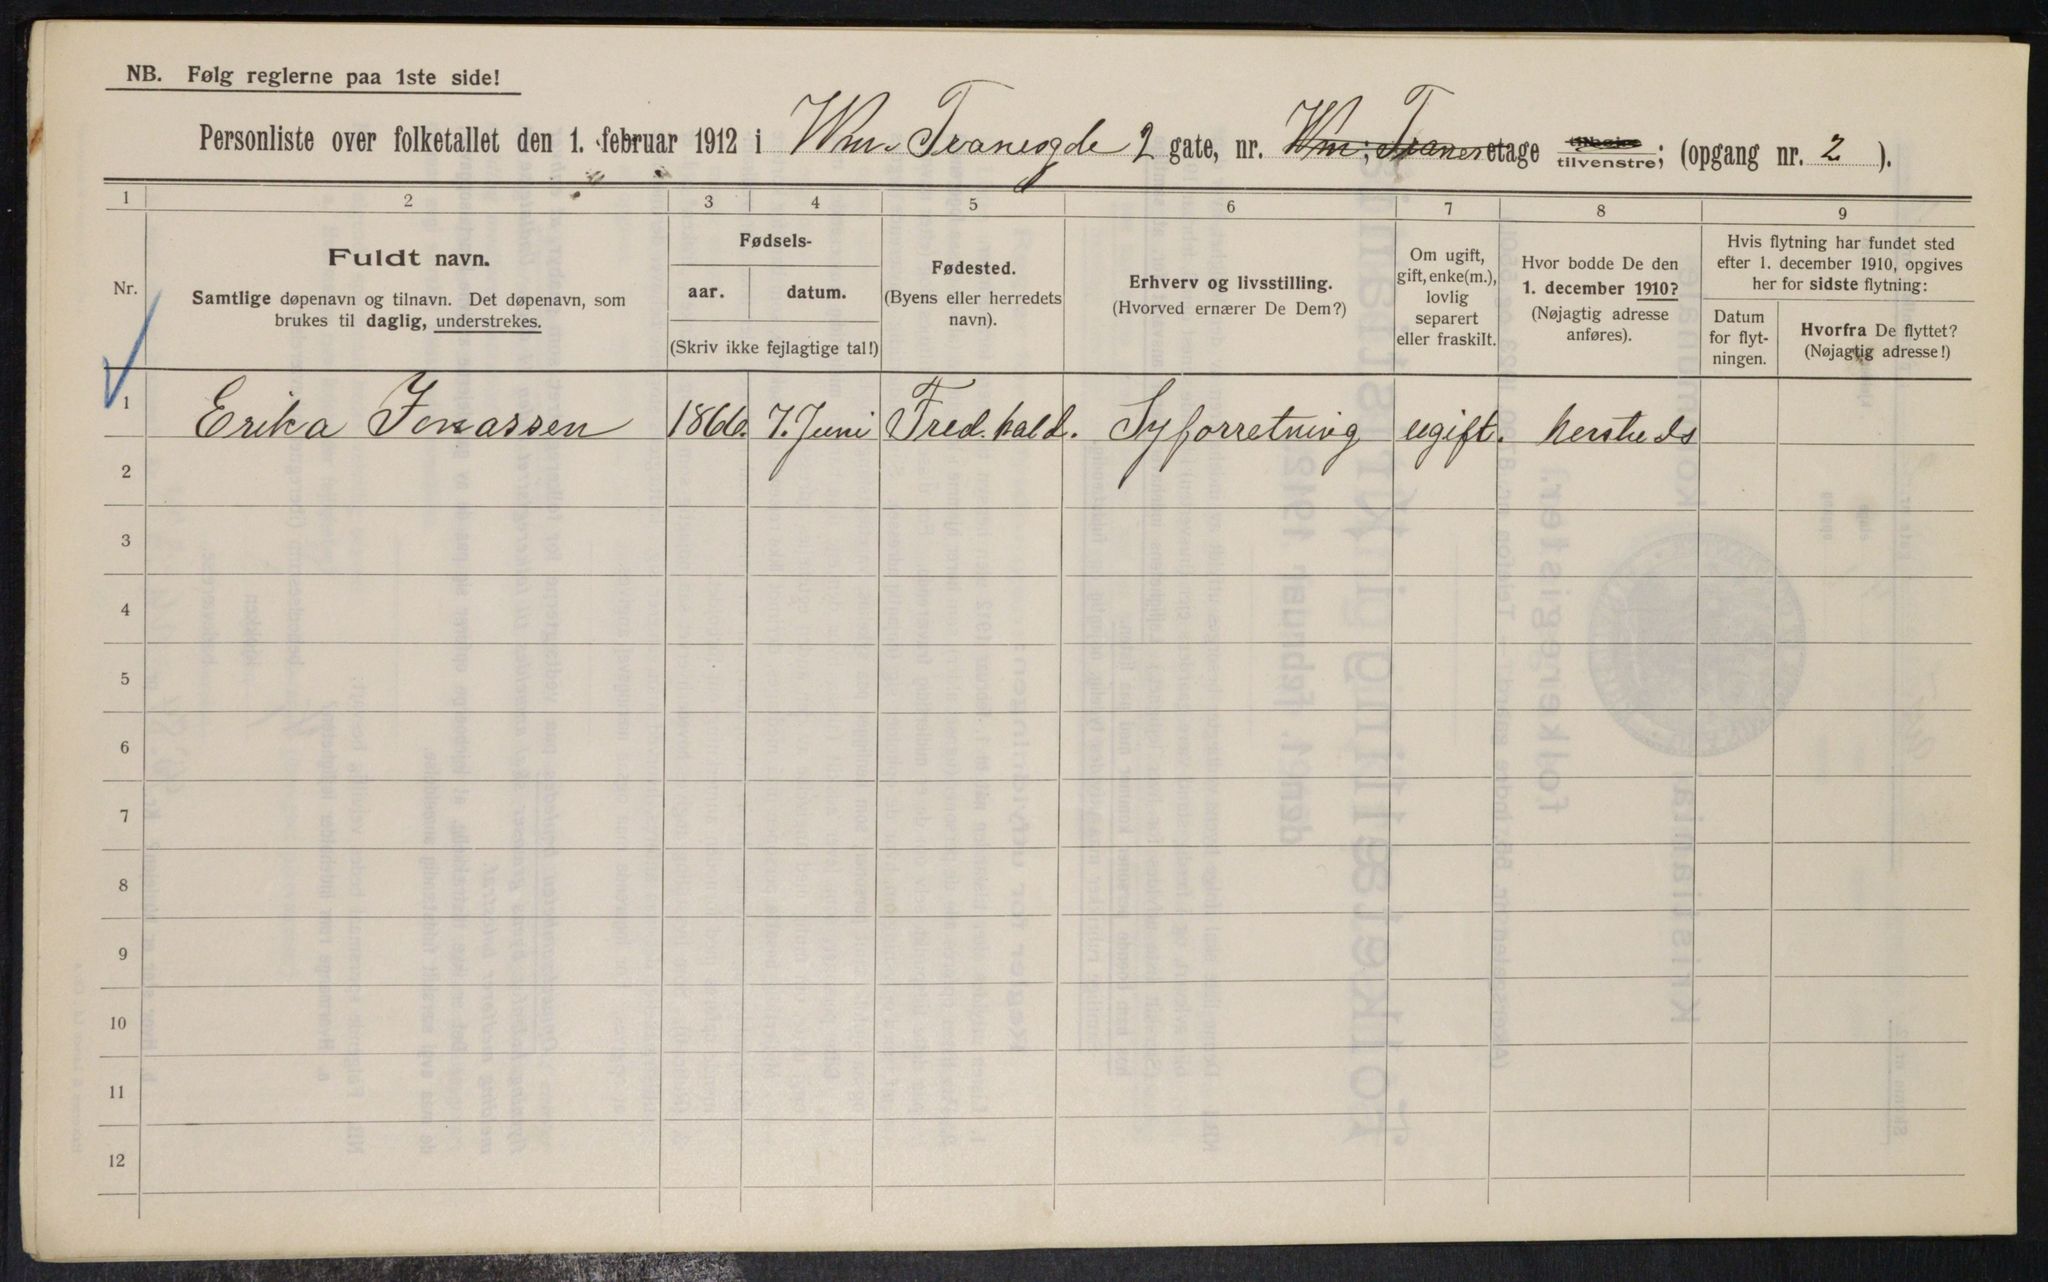 NB. Følg reglerne paa 1ste side!
Personliste over folketallet den 1. februar 1912 i Wm. Tranesgde 2 gate, nr. Wm. Tranes etage tilhøire tilvenstre; (opgang nr. 2 ).
1 2 3 4 5 6 7 8 9
Nr.
Fuldt navn.
Samtlige døpenavn og tilnavn. Det døpenavn, som
brukes til daglig, understrekes.
Fødsels-
aar. datum.
(Skriv ikke fejlagtige tal!)
Fødested.
(Byens eller herredets
navn).
Erhverv og livsstilling.
(Hvorved ernærer De Dem?)
Om ugift,
gift, enke(m.),
lovlig
separert
eller fraskilt.
Hvor bodde De den
1. december 1910?
(Nøjagtig adresse
anføres).
Hvis flytning har fundet sted
efter 1. december 1910, opgives
her for sidste flytning:
Datum
for flyt-
ningen.
Hvorfra De flyttet?
(Nøjagtig adresse!)
1 Erika Jonassen 1866. 7. Juni Fred.hald. Syforretning ugift. hersteds
2
3
4
5
6
7
8
9
10
11
12